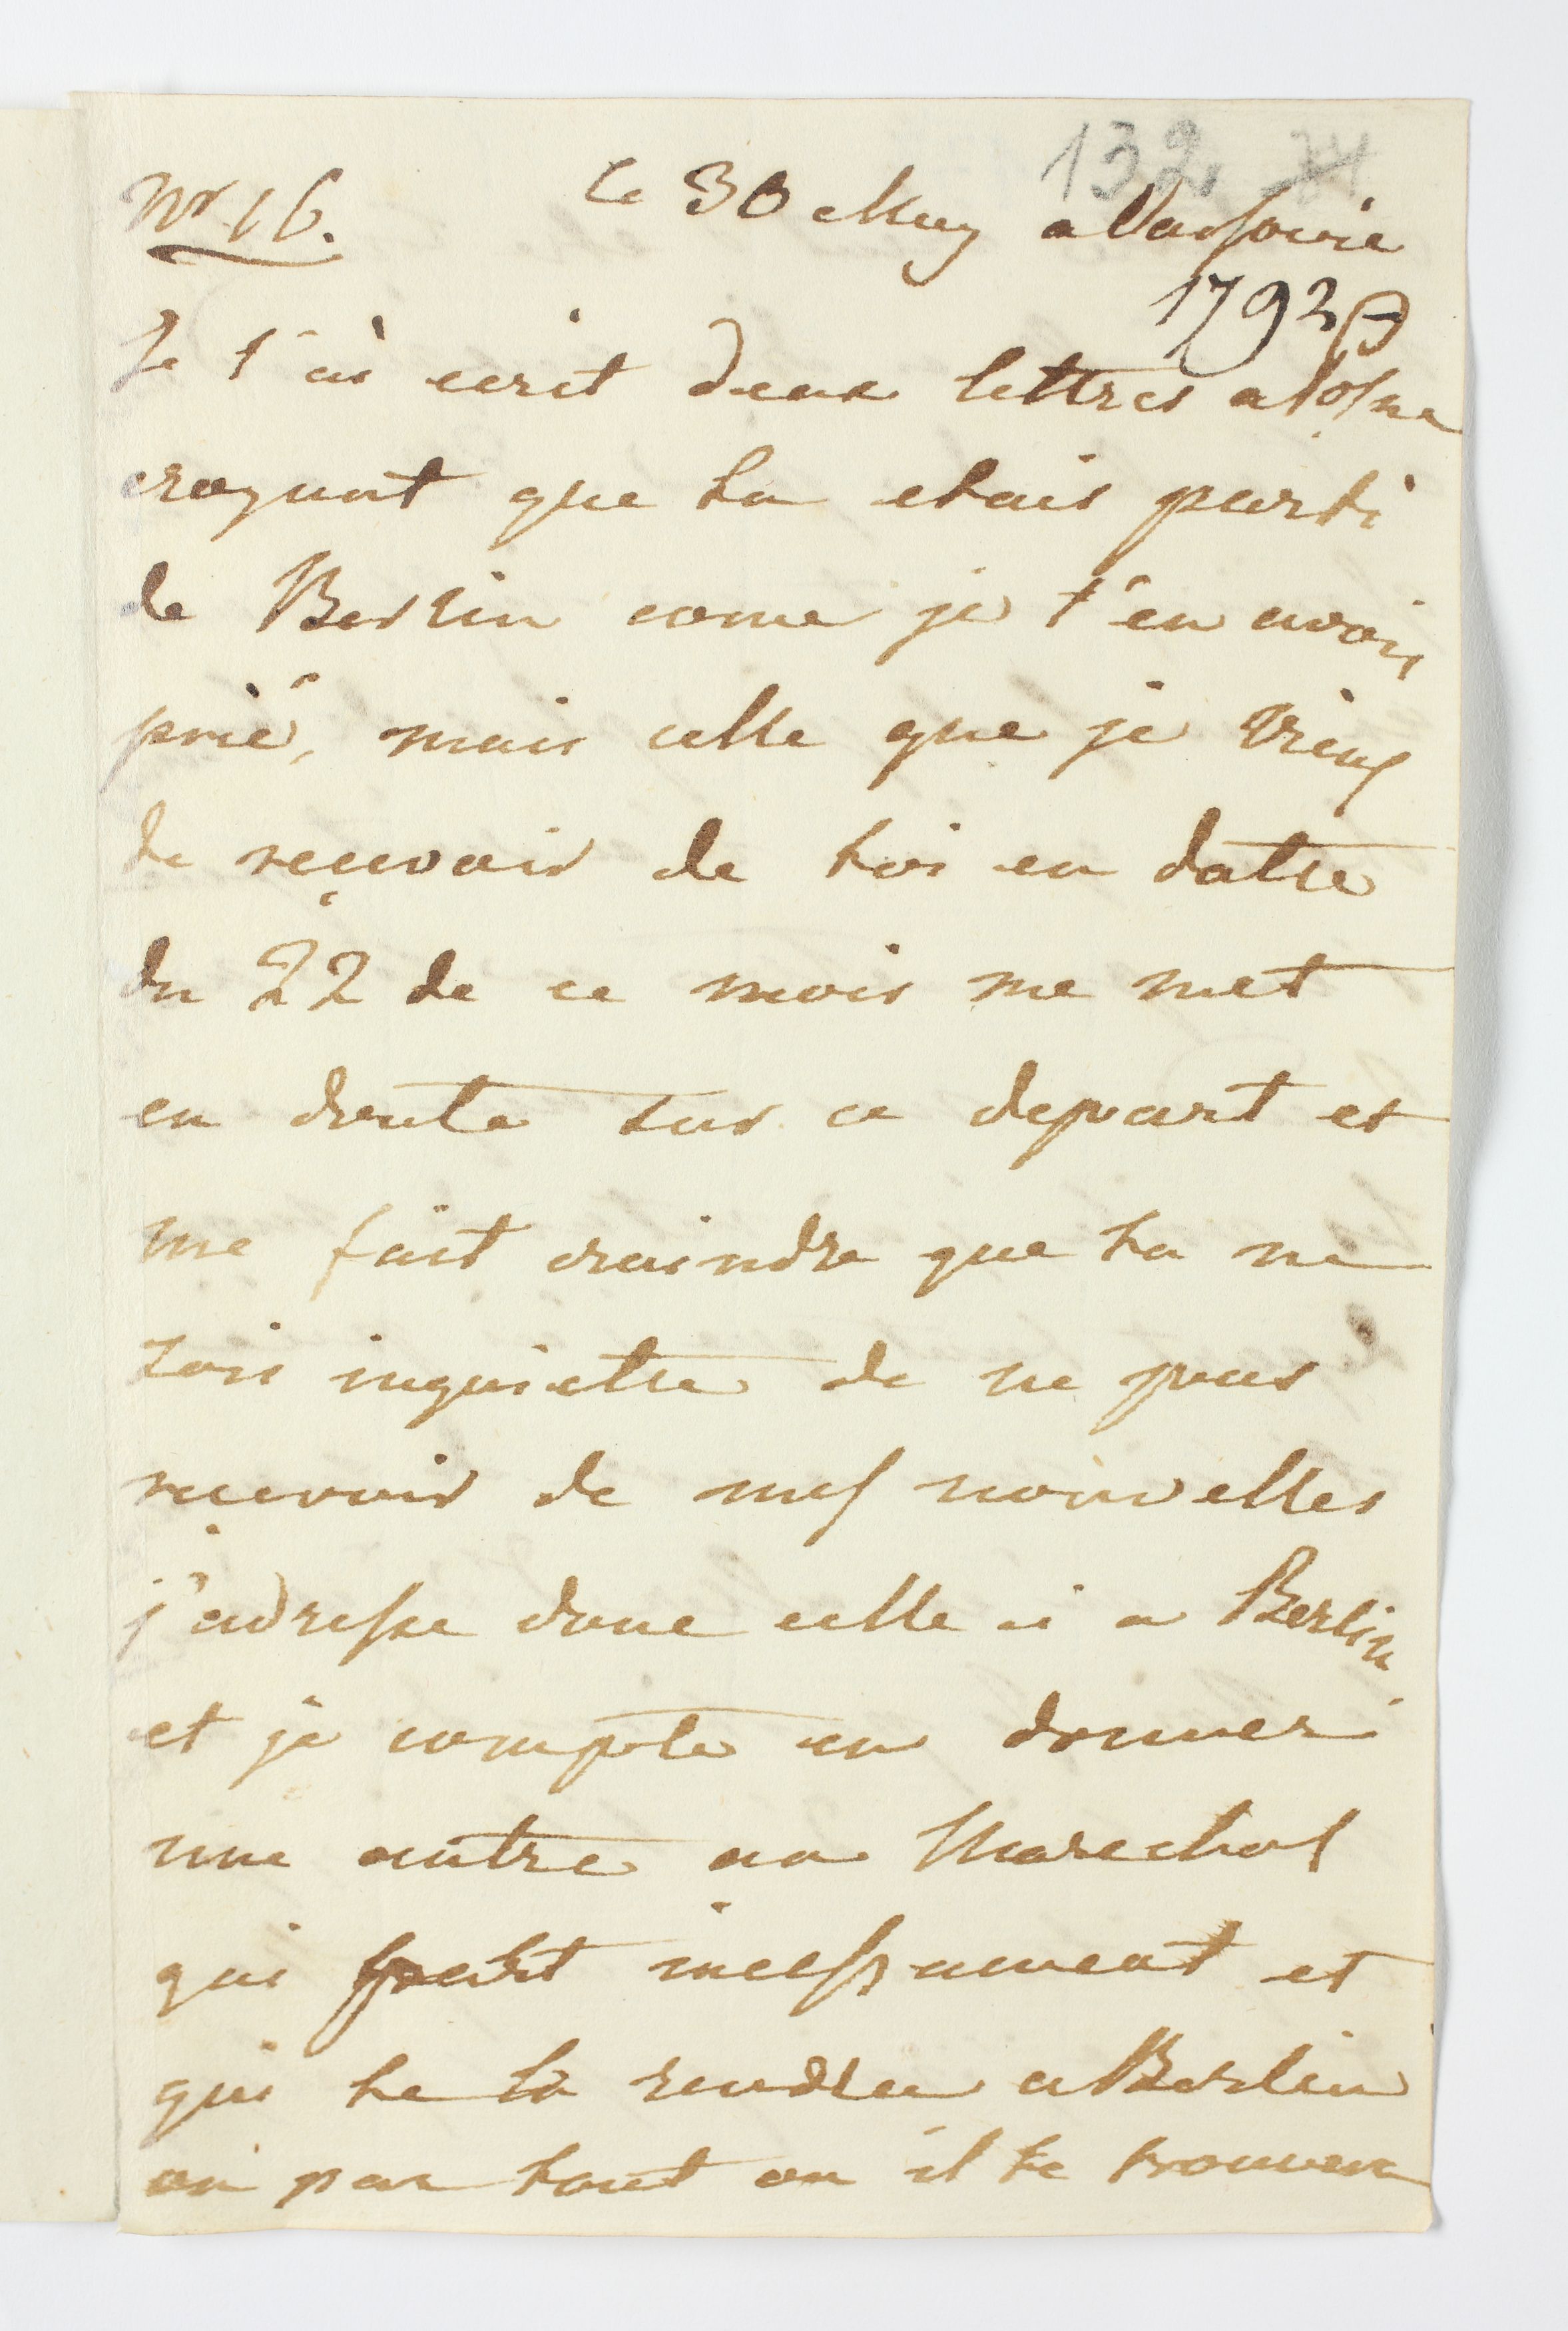 132.
Nr 16. Ce 30 May a Varsovie
1793
Je t'ai ecrit deux lettres a Posna
croyant que tu etais parti
de Berlin come je t'en avois
prié, mais celle que je viens
de reçevoir de toi en datte
du 22 de ce mois me met
en doute sur ce depart et
me fait craindre que tu ne
sois inquiette de ne pas
recevoir de mes nouvelles
j'adresse donc celle ci a Berlin
et je compte en donner
une autre au Marechal
qui part incessament et
qui te la rendra a Berlin
ou par tout ou il te trouvera